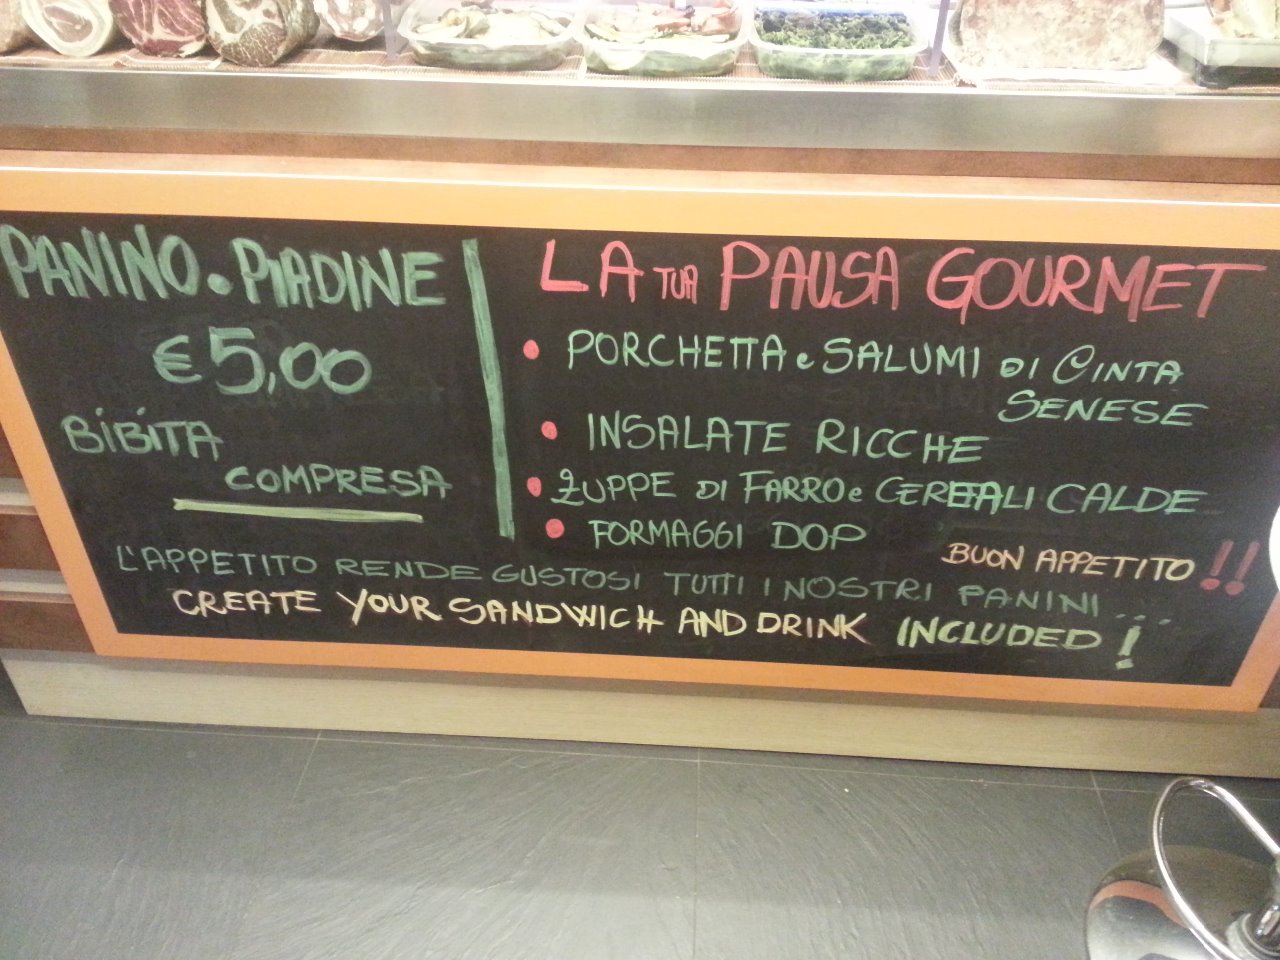 PANINO • PIADINE
€ 5,00
BIBITA
COMPRESA
LA TUA PAUSA GOURMET
• PORCHETTA e SALUMI DI CINTA
SENESE
• INSALATE RICCHE
• ZUPPE DI FARRO e CEREALI CALDE
• FORMAGGI DOP
BUON APPETITO !!
L'APPETITO RENDE GUSTOSI TUTTI I NOSTRI PANINI...
CREATE YOUR SANDWICH AND DRINK INCLUDED!